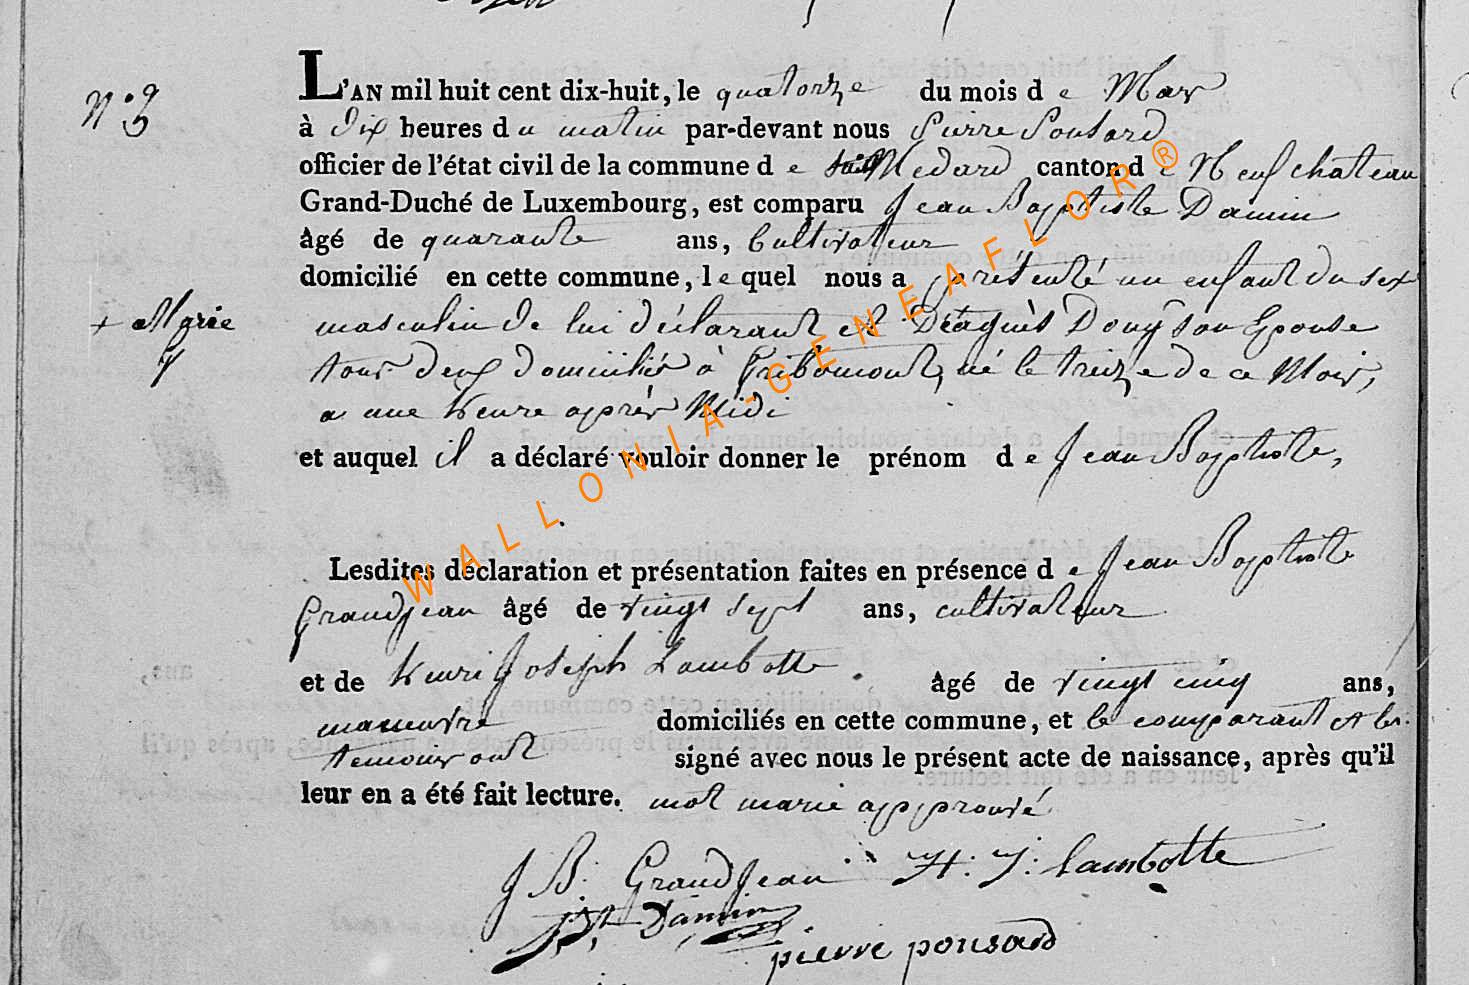 N.° 3
L'AN mil huit cent dix-huit, le quatorze du mois de Mars
à dix heures du matin par-devant nous Pierre Ponsard
officier de l'état civil de la commune de Medard canton de Neufchateau
Grand-Duché de Luxembourg, est comparu Jean Baptiste Damin
âgé de quarante ans, Cultivateur
domicilié en cette commune, lequel nous a présenté un enfant du sex
+ Marie
masculin de lui déclarant et D'agnès Dony son Epouse
tous deux domiciliés à Gribomont, né le treize de ce Mois,
a une heure après Midi
et auquel il a déclaré vouloir donner le prénom de Jean Baptiste,
Lesdites déclaration et présentation faites en présence de Jean Baptiste
Grandjean âgé de vingt sept ans, cultivateur
et de Henri Joseph Lambotte âgé de vingt cinq ans,
maneuvre domiciliés en cette commune, et le comparant et les
temoins ont signé avec nous le présent acte de naissance, après qu'il
leur en a été fait lecture. mot marie approuvé
J B. GrandJean H. J. lambotte
Damin
pierre ponsard
WALLONIA-GENEAFLOR®